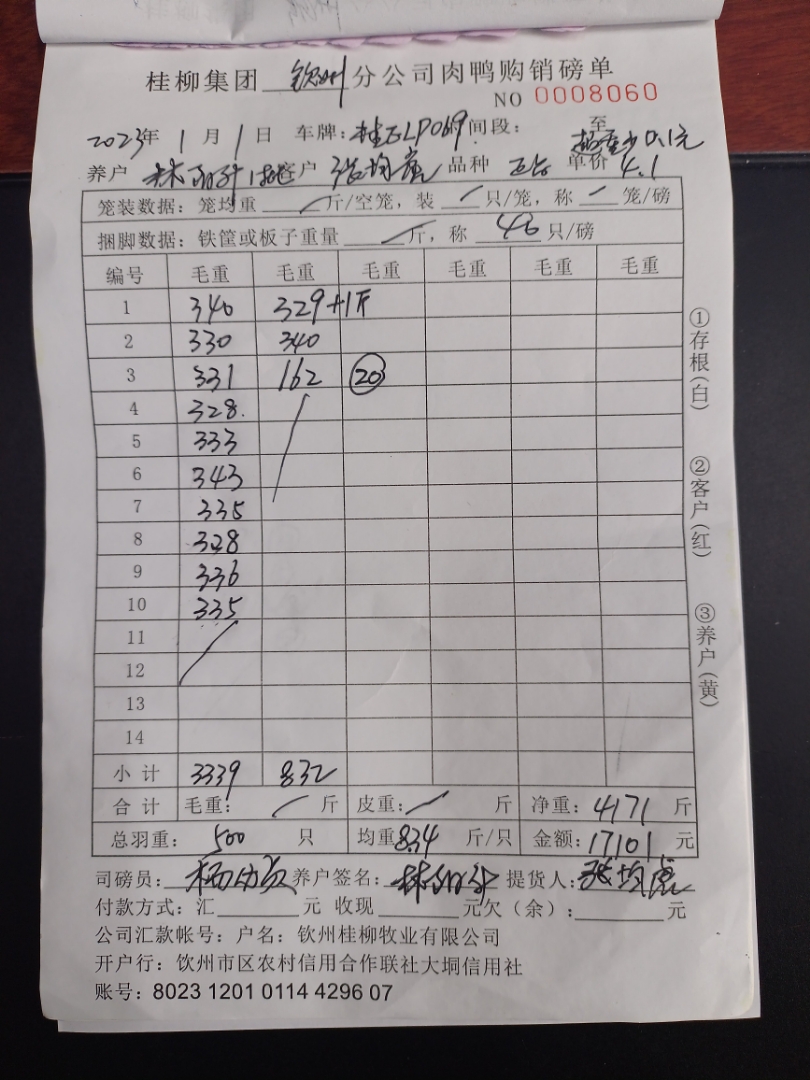 桂柳集团 钦州 分公司肉鸭购销磅单
NO 0008060
2023年 1月 1日 车牌: 桂 LP069 时间段: 至
超重少0.1元
养户 林 客户 张均虎 品种 单价 4.1
笼装数据: 笼均重 / 斤/空笼, 装 / 只/笼, 称 / 笼/磅
捆脚数据: 铁筐或板子重量 / 斤, 称 40 只/磅
编号 毛重 毛重 毛重 毛重 毛重 毛重
1 340 329+1斤
2 330 340
3 331 162 20
4 328.
5 333
6 343
7 335
8 328
9 336
10 335
11
12
13
14
小计 3339 832
合计 毛重: / 斤 皮重: / 斤 净重: 4171 斤
总羽重: 500 只 均重 8.34 斤/只 金额: 17101 元
司磅员: 杨 养户签名: 林 提货人: 张均虎
付款方式: 汇 元 收现 元欠(余): 元
公司汇款帐号: 户名: 钦州桂柳牧业有限公司
开户行: 钦州市区农村信用合作联社大垌信用社
账号: 8023 1201 0114 4296 07
①存根(白)
②客户(红)
③养户(黄)